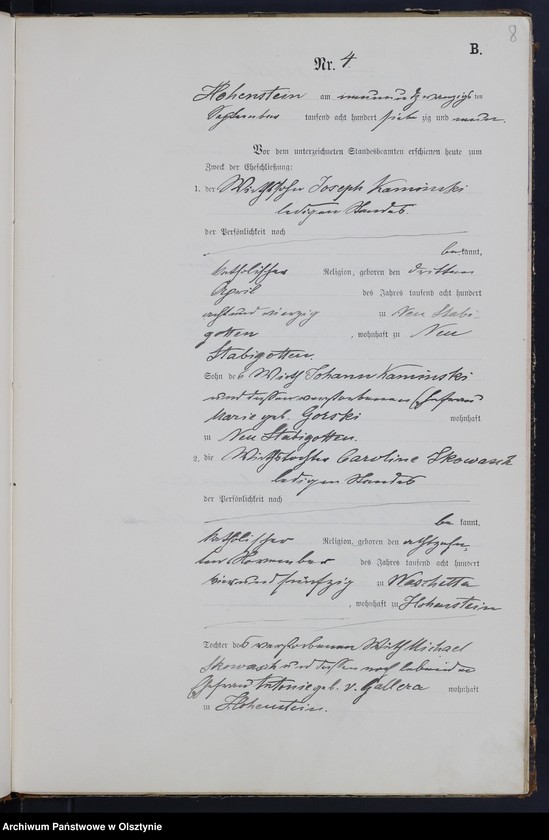 8
B.
Nr. 4.
Hohenstein am neunundzwanzigsten
September tausend acht hundert siebenzig und neun.
Vor dem unterzeichneten Standesbeamten erschienen heute zum
Zweck der Eheschließung:
1. der Wirthssohn Joseph Kaminski
ledigen Standes.
der Persönlichkeit nach
bekannt,
katholischer Religion, geboren den dritten
April des Jahres tausend acht hundert
achtund vierzig zu Neu Stabi
gotten, wohnhaft zu Neu
Stabigotten.
Sohn des Wirth Johann Kaminski
und dessen verstorbenen Ehefrau
Marie geb. Gorski wohnhaft
zu Neu Stabigotten.
2. die Wirthstochter Caroline Skowasch
ledigen Standes
der Persönlichkeit nach
bekannt,
katholischer Religion, geboren den achtzehn-
ten November des Jahres tausend acht hundert
vierundfünfzig zu Waschetta
, wohnhaft zu Hohenstein
Tochter des verstorbenen Wirth Michael
Skowasch und dessen noch lebenden
Ehefrau Antonie geb. v. Gallera wohnhaft
zu Hohenstein.
Archiwum Państwowe w Olsztynie